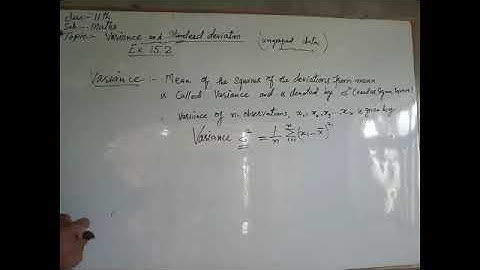 Class:- 11th
Sub:- Maths
Topic:- Variance and Standard deviation (ungrouped data)
Ex 15.2
Variance :- Mean of the squares of the deviations from mean
is called Variance and is denoted by σ² (read as sigma square)
Variance of n observations, x₁, x₂, x₃ .. xₙ is given by
Variance σ² = 1/n Σᵢ₌₁ⁿ (xᵢ - x̄)²